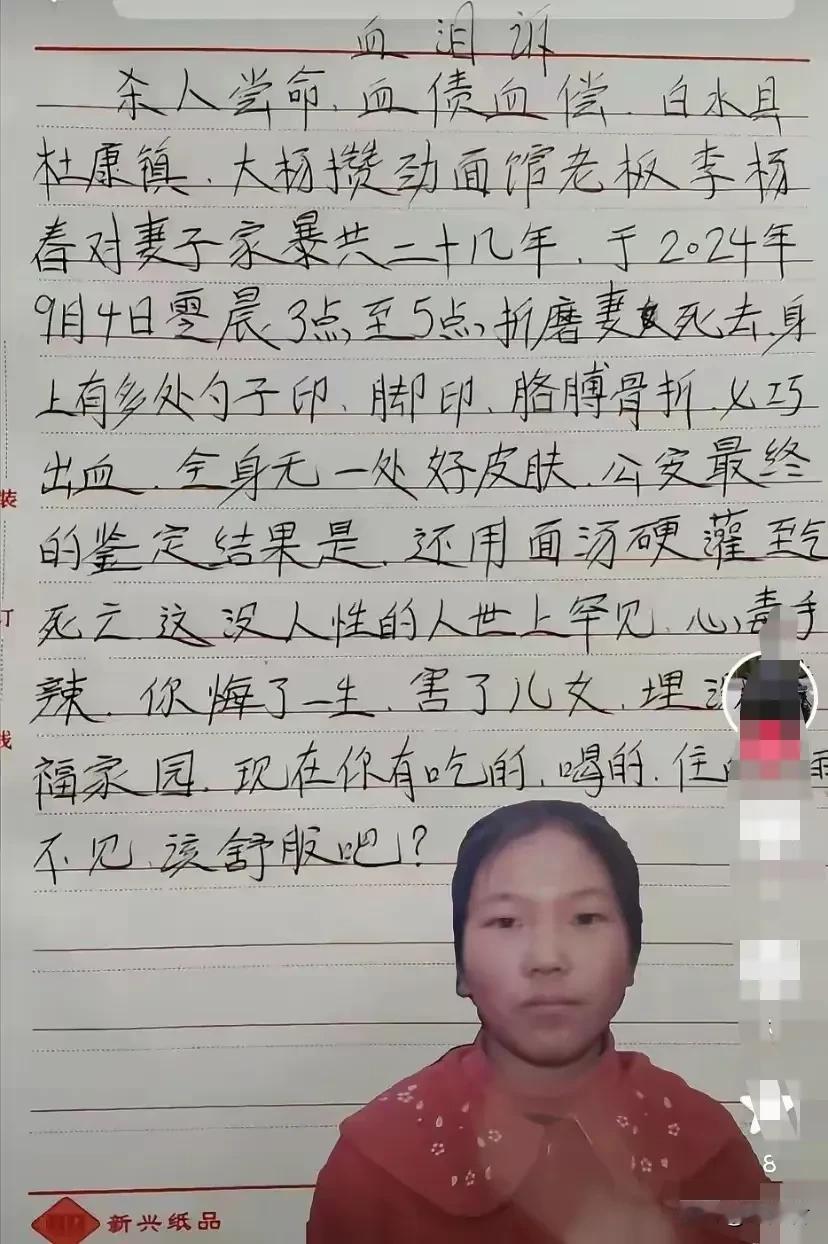 血泪诉
杀人尝命、血债血偿、白水县
杜康镇、大杨攒劲面馆老板李杨
春对妻子家暴共二十几年、于2024年
9月4日零晨3点至5点,折磨妻死去、身
上有多处勺子印、脚印、胳膊骨折、乂巧
出血、全身无一处好皮肤、公安最终
的鉴定结果是、还用面汤硬灌至气
死亡、这没人性的人世上罕见、心毒手
辣、你悔了一生、害了儿女、埋
福家园、现在你有吃的、喝的、住
不见、该舒服吧?
装
订
线
8
新兴纸品